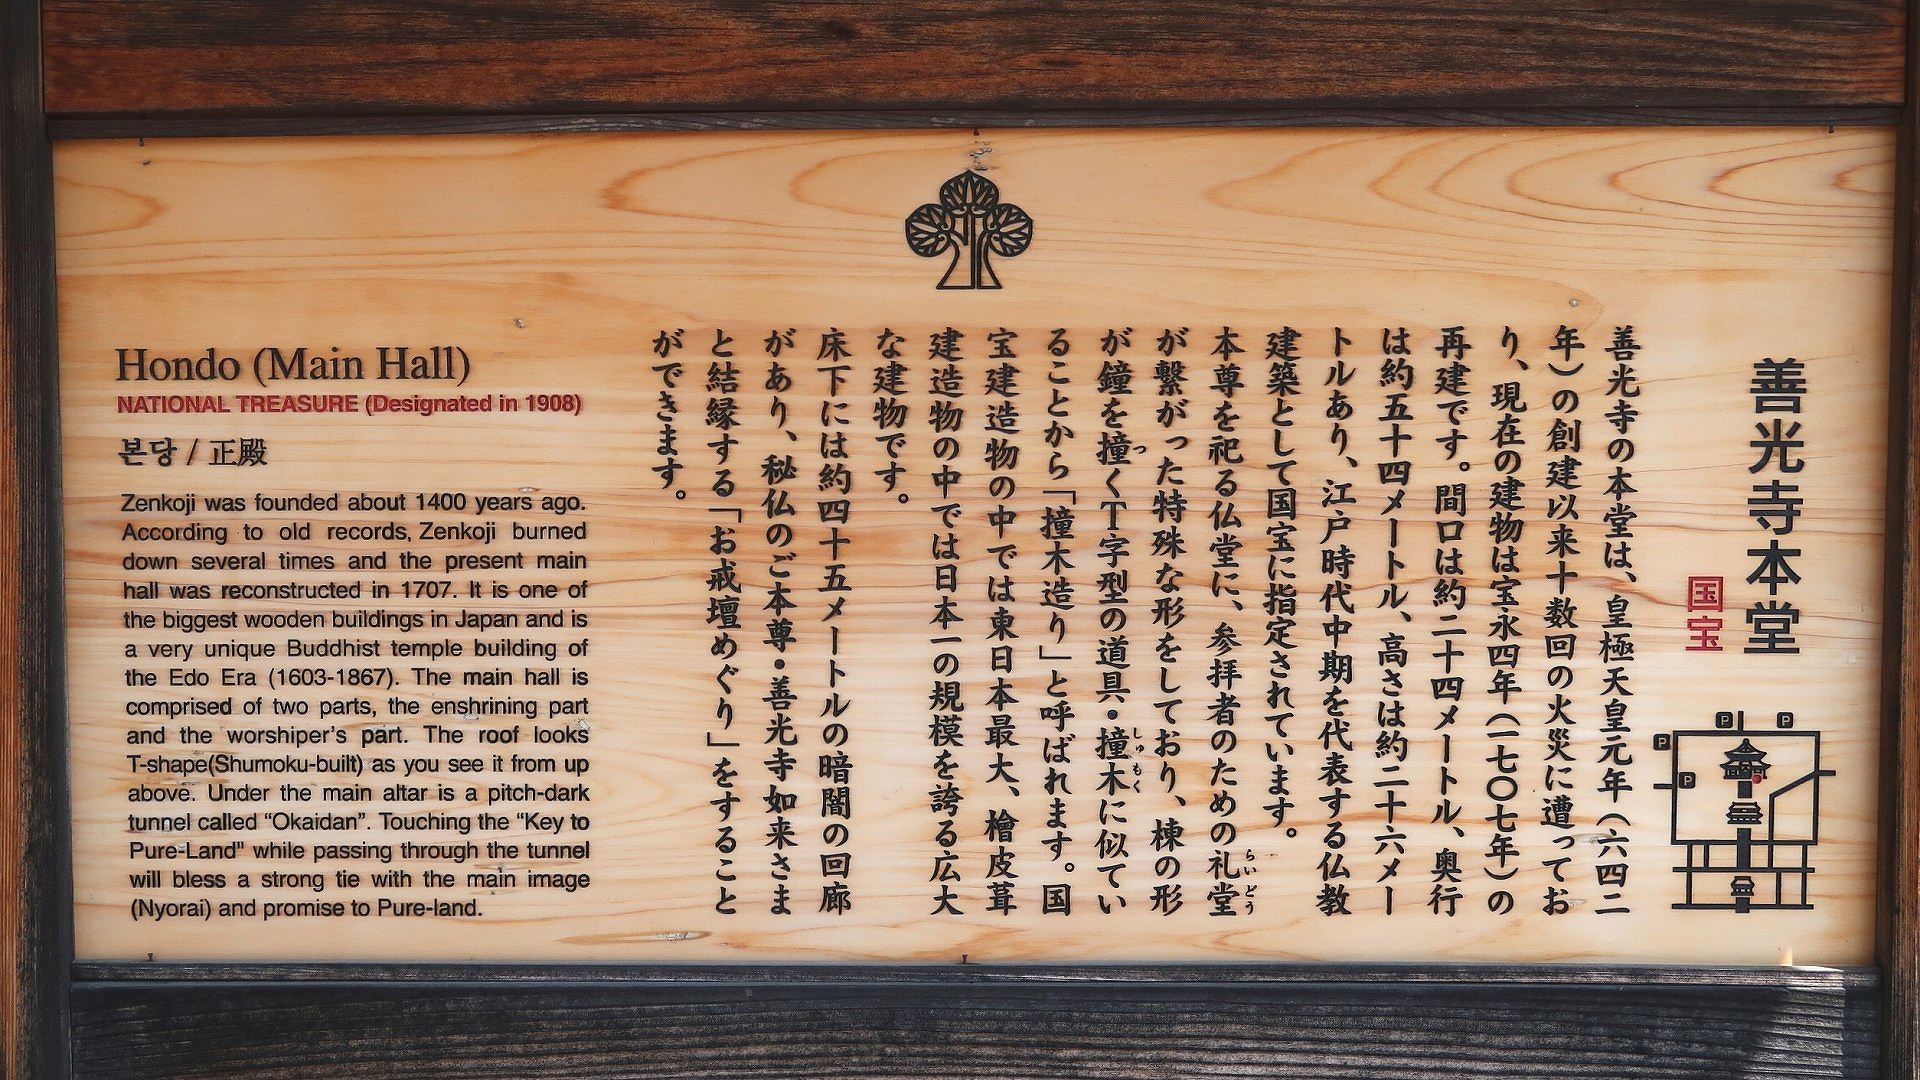 善光寺本堂
国宝
善光寺の本堂は、皇極天皇元年（六四二
年）の創建以来十数回の火災に遭ってお
り、現在の建物は宝永四年（一七〇七年）の
再建です。間口は約二十四メートル、奥行
は約五十四メートル、高さは約二十六メー
トルあり、江戸時代中期を代表する仏教
建築として国宝に指定されています。
本尊を祀る仏堂に、参拝者のための礼堂
らいどう
が繋がった特殊な形をしており、棟の形
が鐘を撞くT字型の道具・撞木に似てい
つ
しゅもく
ることから「撞木造り」と呼ばれます。国
宝建造物の中では東日本最大、檜皮葺
建造物の中では日本一の規模を誇る広大
な建物です。
床下には約四十五メートルの暗闇の回廊
があり、秘仏のご本尊・善光寺如来さま
と結縁する「お戒壇めぐり」をすること
ができます。
Hondo (Main Hall)
NATIONAL TREASURE (Designated in 1908)
본당 / 正殿
Zenkoji was founded about 1400 years ago.
According to old records, Zenkoji burned
down several times and the present main
hall was reconstructed in 1707. It is one of
the biggest wooden buildings in Japan and is
a very unique Buddhist temple building of
the Edo Era (1603-1867). The main hall is
comprised of two parts, the enshrining part
and the worshiper's part. The roof looks
T-shape(Shumoku-built) as you see it from up
above. Under the main altar is a pitch-dark
tunnel called “Okaidan”. Touching the “Key to
Pure-Land" while passing through the tunnel
will bless a strong tie with the main image
(Nyorai) and promise to Pure-land.
P
P
P
P